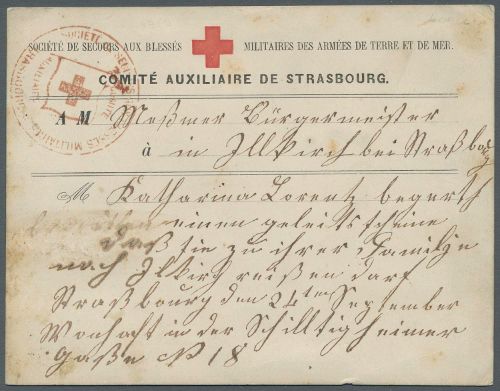 SOCIÉTÉ DE SECOURS AUX BLESSÉS MILITAIRES DES ARMÉES DE TERRE ET DE MER.
COMITÉ AUXILIAIRE DE STRASBOURG.
A M Meßmer Bürgermeister
à in Illkirch bei Straßbourg
M Katharina Lorentz begerth
einen geleitsscheine
daß sie zu ihrer Familge
nach Illkirch reißen darf
Straßbourg den 24ten September
Wonhaft in der Schilltigheimer
Gaße № 18